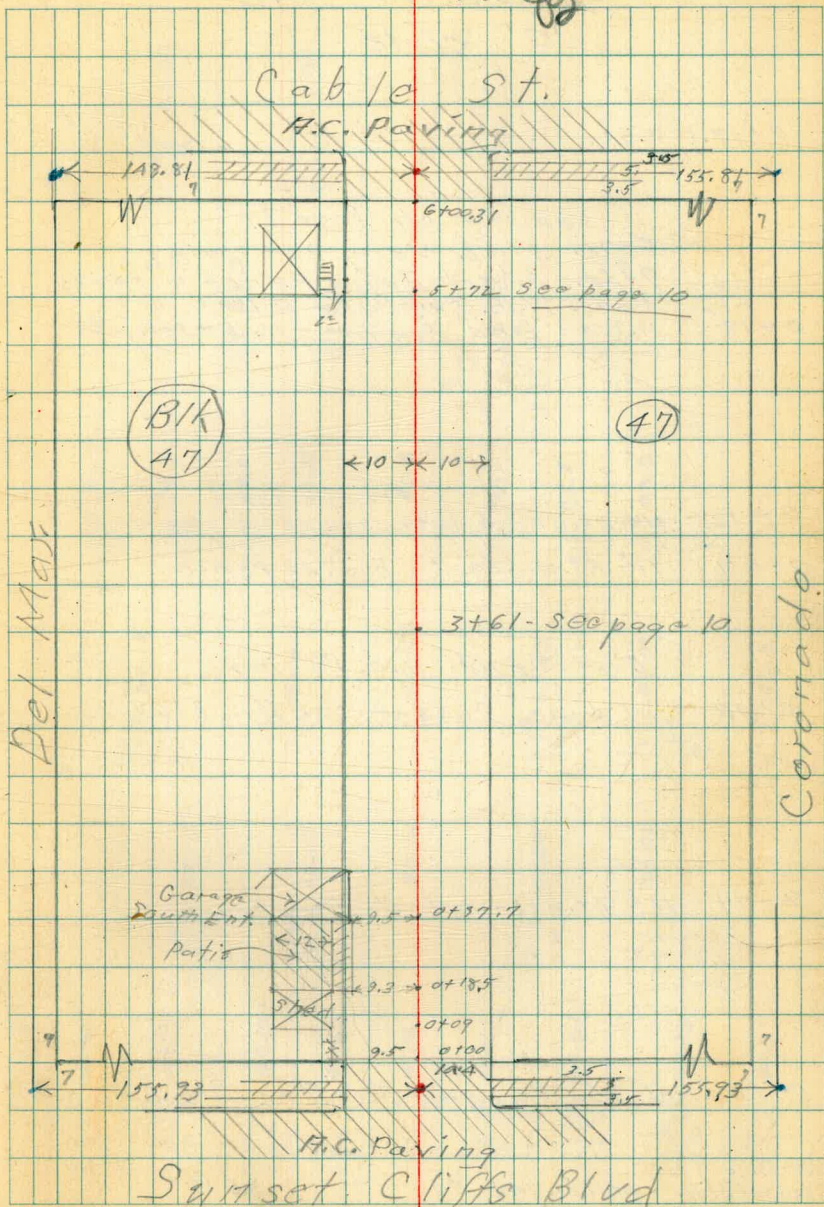 Cable St.
A.C. Paving
148.81
3.5
5
3.5
155.81
7
7
6+00.31
7
5+72 see page 10
2±
Blk
47
47
←10→←10→
Del Mar
3+61 - See page 10
Coronado
Garage
South Ent.
9.5
0+37.7
12
Patio
9.3
0+18.5
Shed
0+09
9.5
0+00
7
7
7
155.93
3.5
5
3.5
155.93
A.C. Paving
Sunset Cliffs Blvd